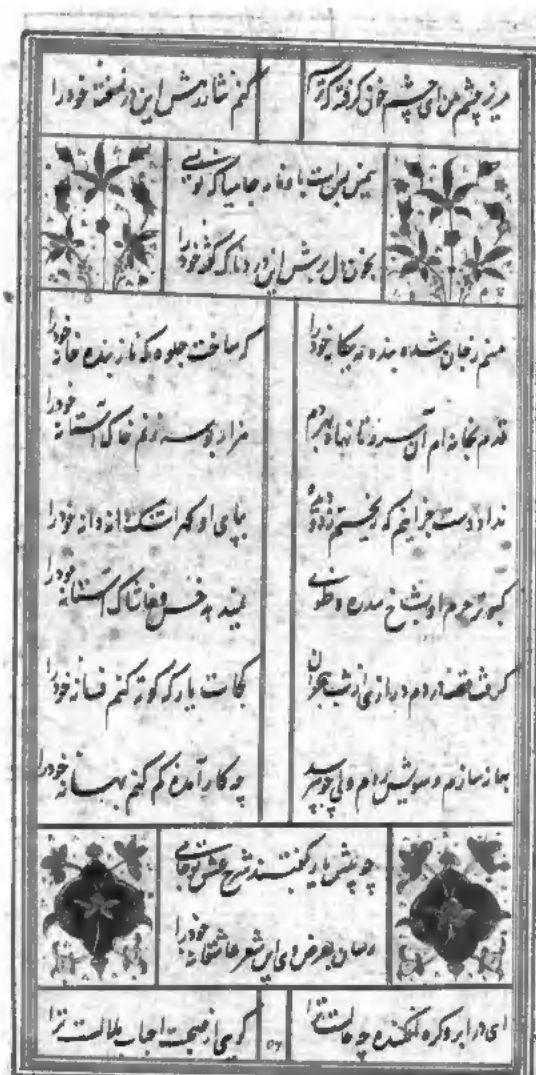 مریز چشم من ای چشم خانی گرفته که ترسم
کنم نثار رهش این در سفته خود را
همین بس است با و نام جامیا که نویسی
بخون دل بر بش این درد ناک گفته خود را
منم ز جان شده بنده مه یگانه خود را
که ساخت جلوه که ناز بنده خانه خود را
قدم بخانه ام آن سرو ناز نهاد هر دم
هزار بوسه زنم خاک آستانه خود را
نداد دست جز اینم که ریختم ز دو دیده
بپای او گهر اشک دانه دانه خود را
کبوتر حرم او بشاخ سدره و طوبی
نبیند به خس و خاشاک آستانه خود را
گرفت قصه دردم درازی از شب هجران
کجاست یار که کوته کنم فسانه خود را
بهانه سازم و سویش روم ولی چو بپرسد
چه کار آمده گم کنم بهانه خود را
چو پیش یار نگفتند شرح عشق تو جامی
رسان بعرض وی این شعر عاشقانه خود را
ای در ابرو گره افکنده چه حالست ترا
گویی از صحبت احباب ملالست ترا